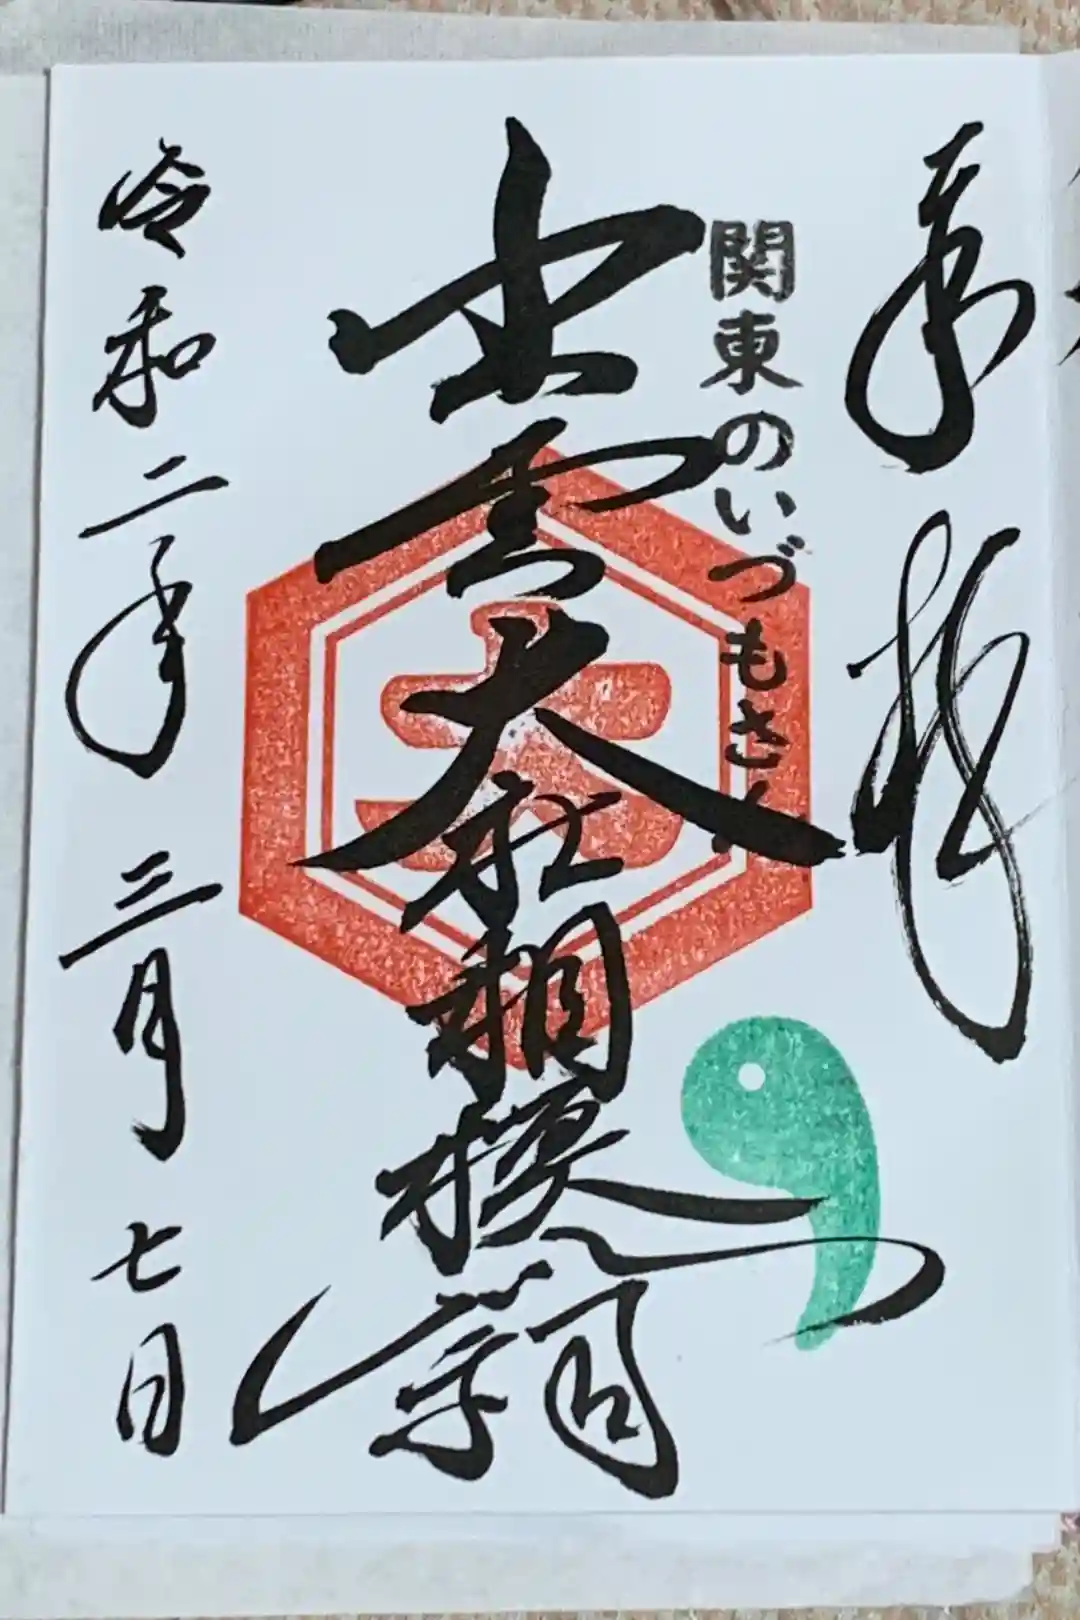 奉拝
関東のいづもさん
出雲大社相模分祠
大
令和二年
三月
七日